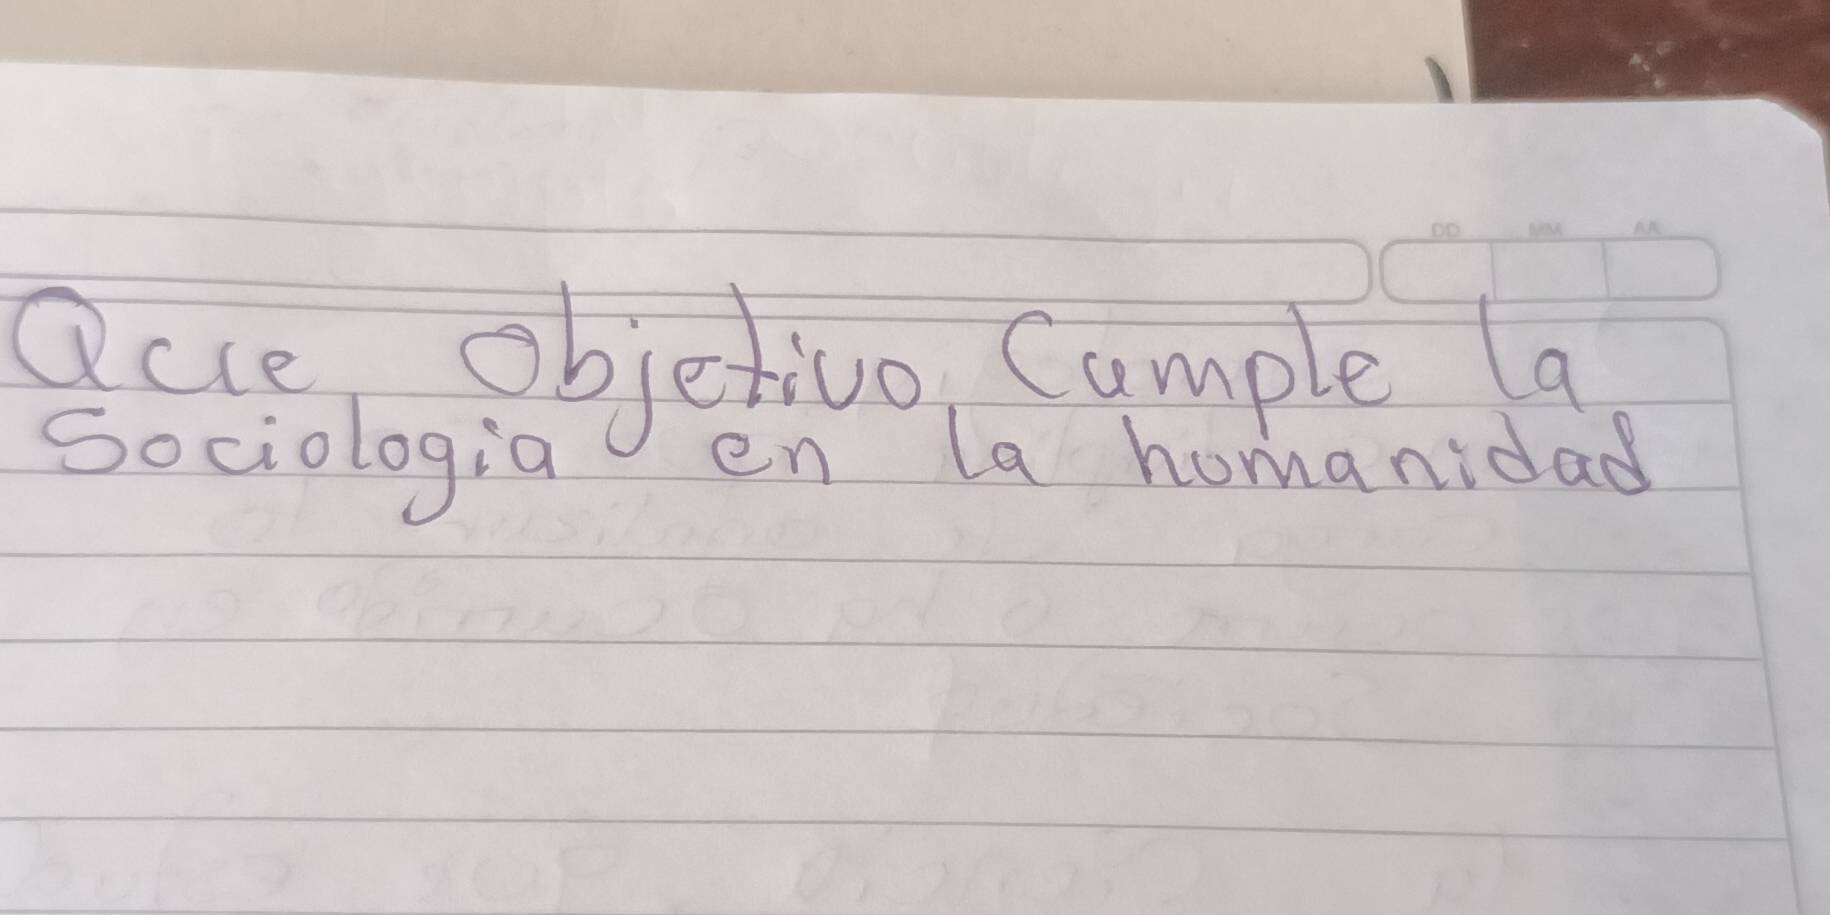 DD MM AA
Que objetivo cumple la
Sociologia en la humanidad